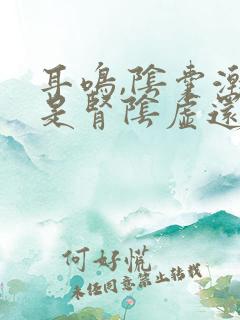 耳鳴,陰囊潮
是腎陰虛還
何好慌
未经同意禁止转载